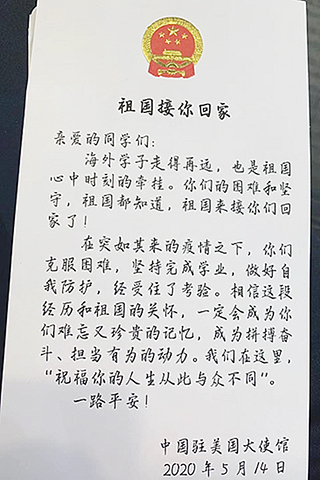 祖国接你回家
亲爱的同学们:
海外学子走得再远，也是祖国
心中时刻的牵挂。你们的困难和坚
守，祖国都知道，祖国来接你们回
家了!
在突如其来的疫情之下，你们
克服困难，坚持完成学业，做好自
我防护，经受住了考验。相信这段
经历和祖国的关怀，一定会成为你
们难忘又珍贵的记忆，成为拼搏奋
斗、担当有为的动力。我们在这里，
“祝福你的人生从此与众不同”。
一路平安!
中国驻美国大使馆
2020年5月14日